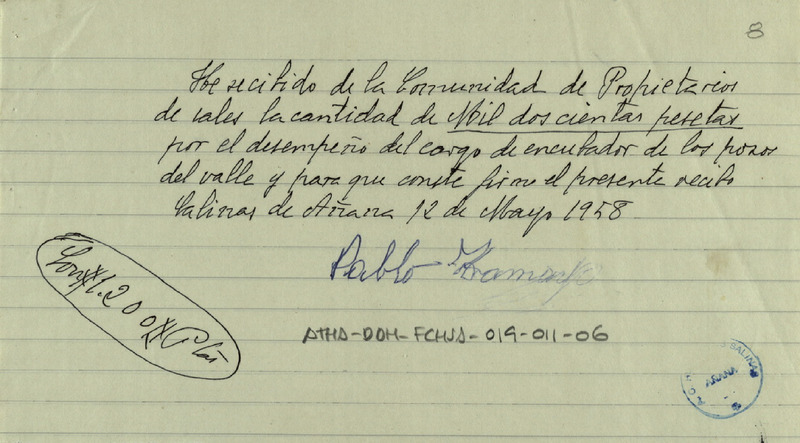 8
He recibido de la Comunidad de Propietarios
de sales la cantidad de Mil doscientas pesetas
por el desempeño del cargo de encubador de los pozos
del valle y para que conste firmo el presente recibo
Salinas de Añana 12 de Mayo 1958
Pablo
Son 1.200 Ptas
ATHA-DOH-FCHSA-019-011-06
SALINAS
AÑANA